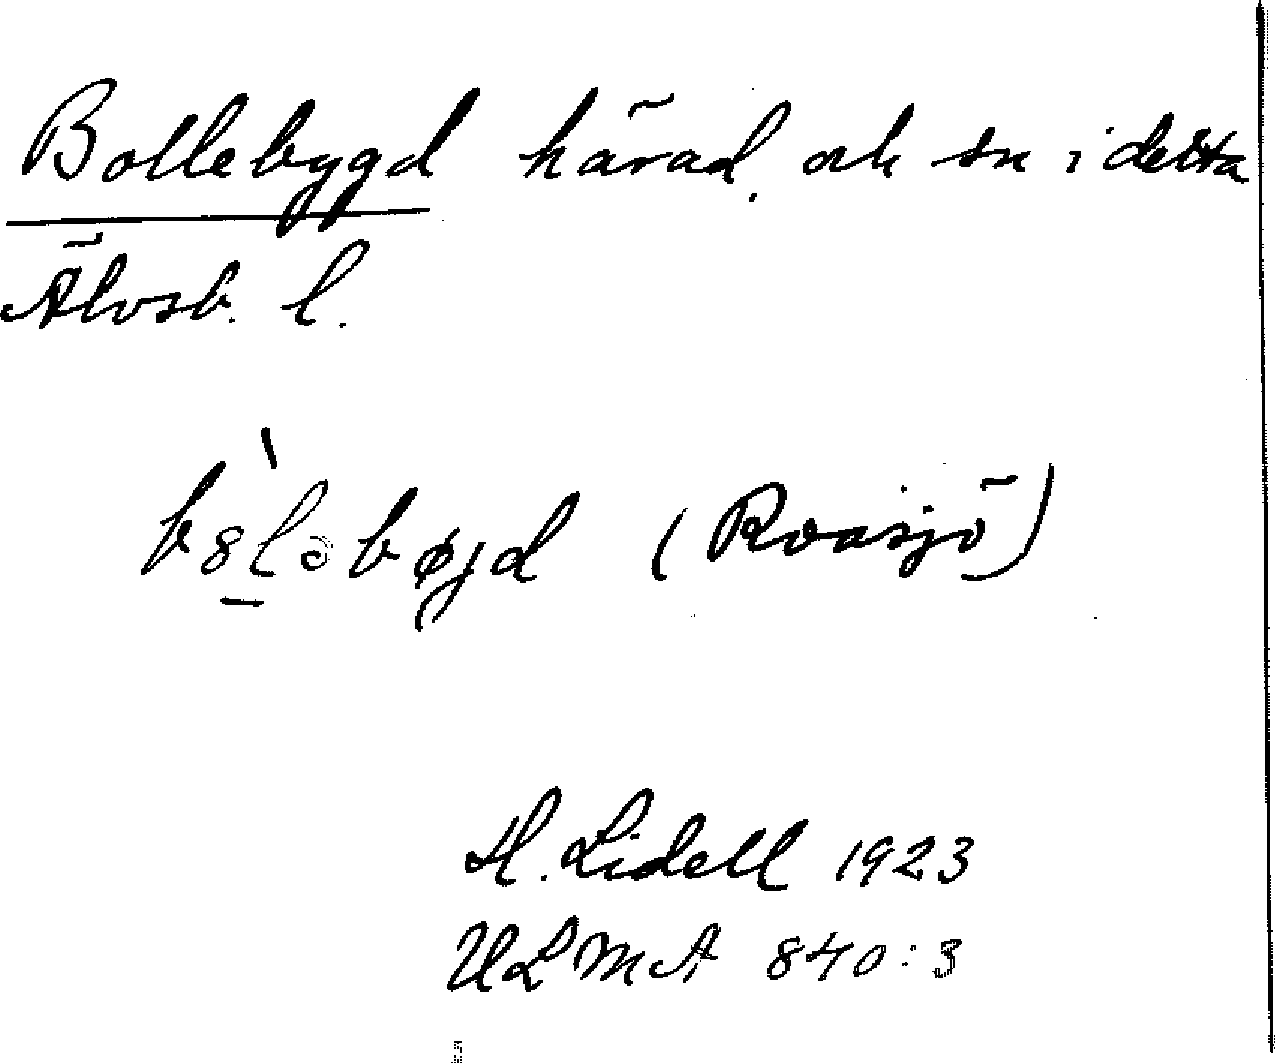 Bollebygd härad och sn i detta
Älvsb. l.
b8̀l̠əbøjd (Roasjö)
H. Lidell 1923
ULMA 840:3